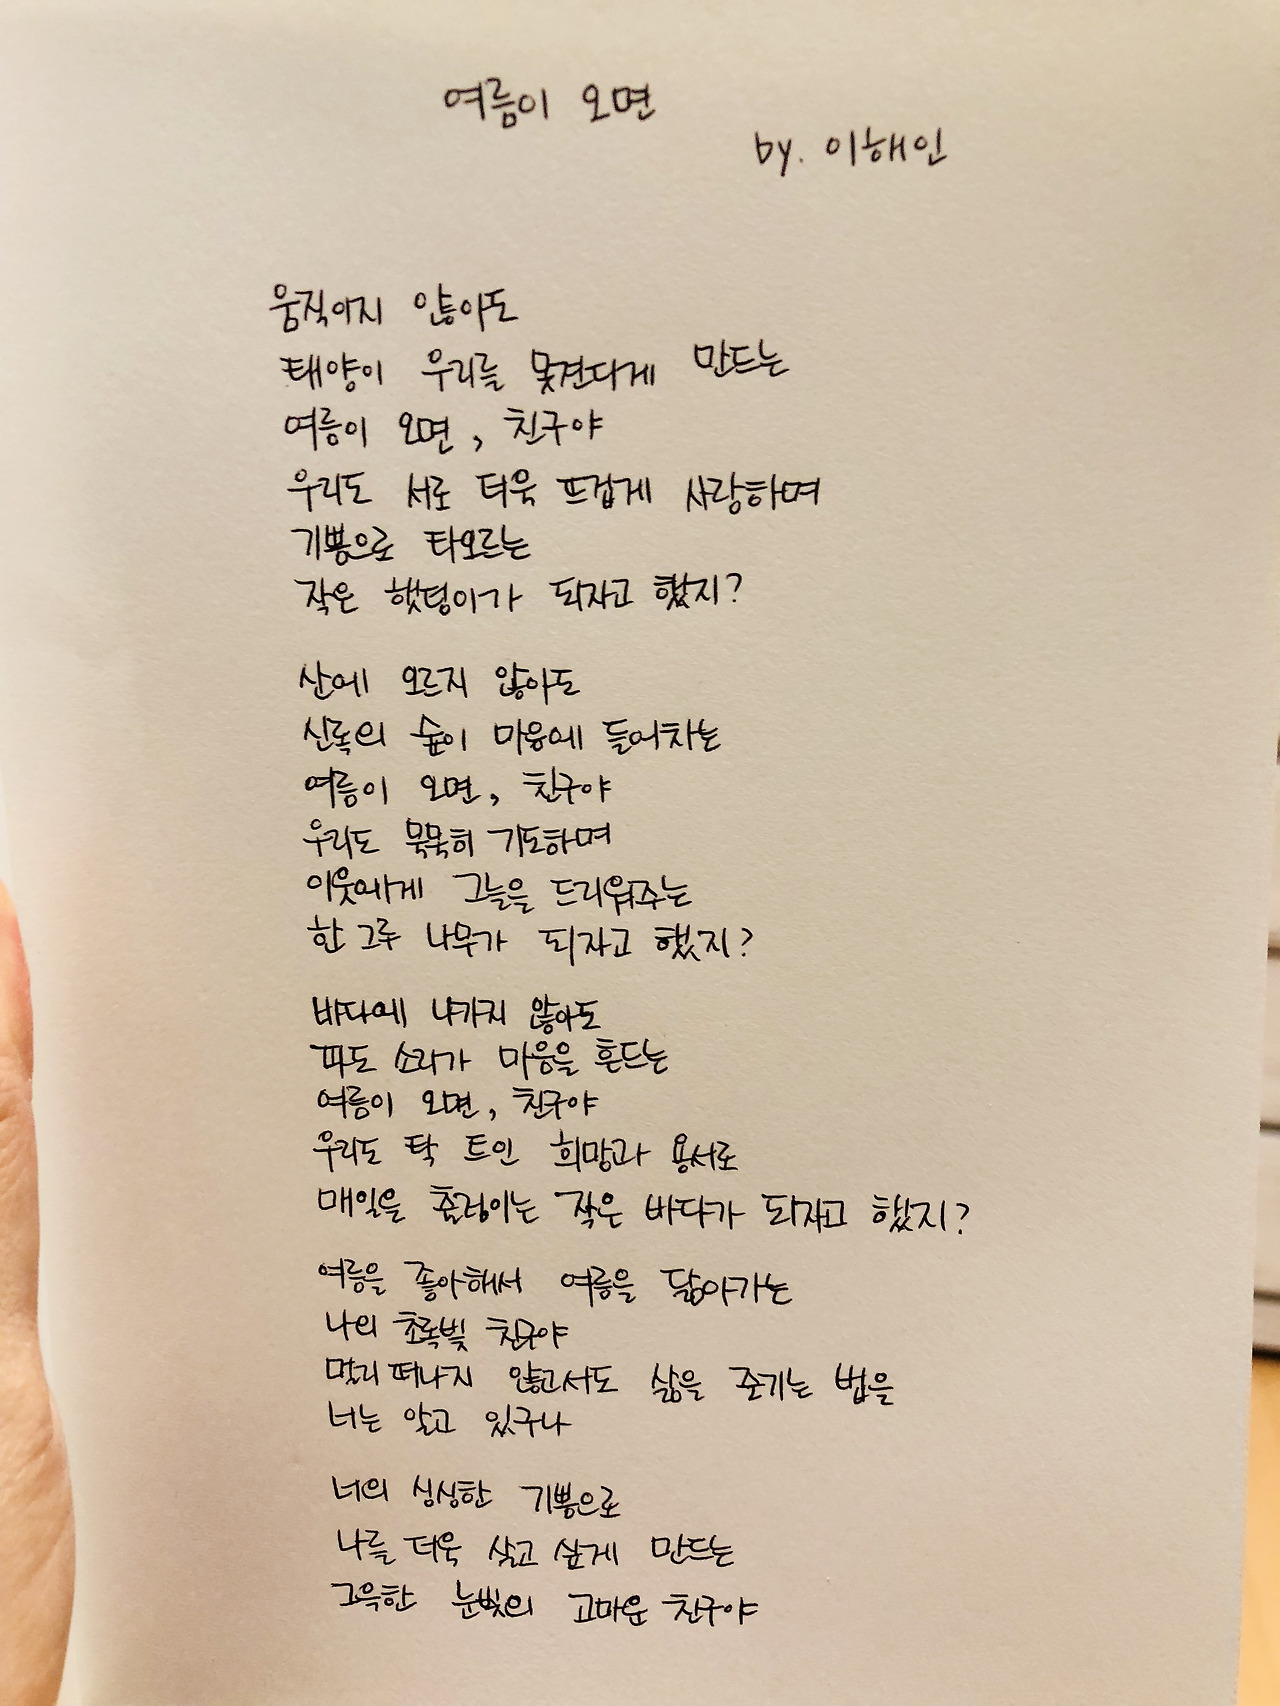 여름이 오면
by. 이해인
움직이지 않아도
태양이 우리를 못견디게 만드는
여름이 오면, 친구야
우리도 서로 더욱 뜨겁게 사랑하며
기쁨으로 타오르는
작은 햇덩이가 되자고 했지?
산에 오르지 않아도
신록의 숲이 마음에 들어차는
여름이 오면, 친구야
우리도 묵묵히 기도하며
이웃에게 그늘을 드리워주는
한 그루 나무가 되자고 했지?
바다에 나가지 않아도
파도 소리가 마음을 흔드는
여름이 오면, 친구야
우리도 탁 트인 희망과 용서로
매일을 출렁이는 작은 바다가 되자고 했지?
여름을 좋아해서 여름을 닮아가는
나의 초록빛 친구야
멀리 떠나지 않고서도 삶을 즐기는 법을
너는 알고 있구나
너의 싱싱한 기쁨으로
나를 더욱 살고 싶게 만드는
그윽한 눈빛의 고마운 친구야